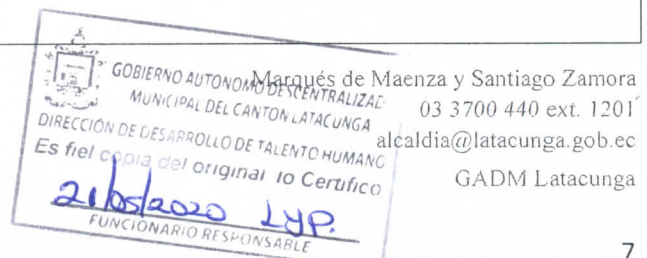 GOBIERNO AUTONOMO DESCENTRALIZAD
MUNICIPAL DEL CANTON LATACUNGA
DIRECCIÓN DE DESARROLLO DE TALENTO HUMANO
Es fiel copia del original lo Certifico
21/05/2020 LYP.
FUNCIONARIO RESPONSABLE
Marqués de Maenza y Santiago Zamora
03 3700 440 ext. 1201
alcaldia@latacunga.gob.ec
GADM Latacunga
7